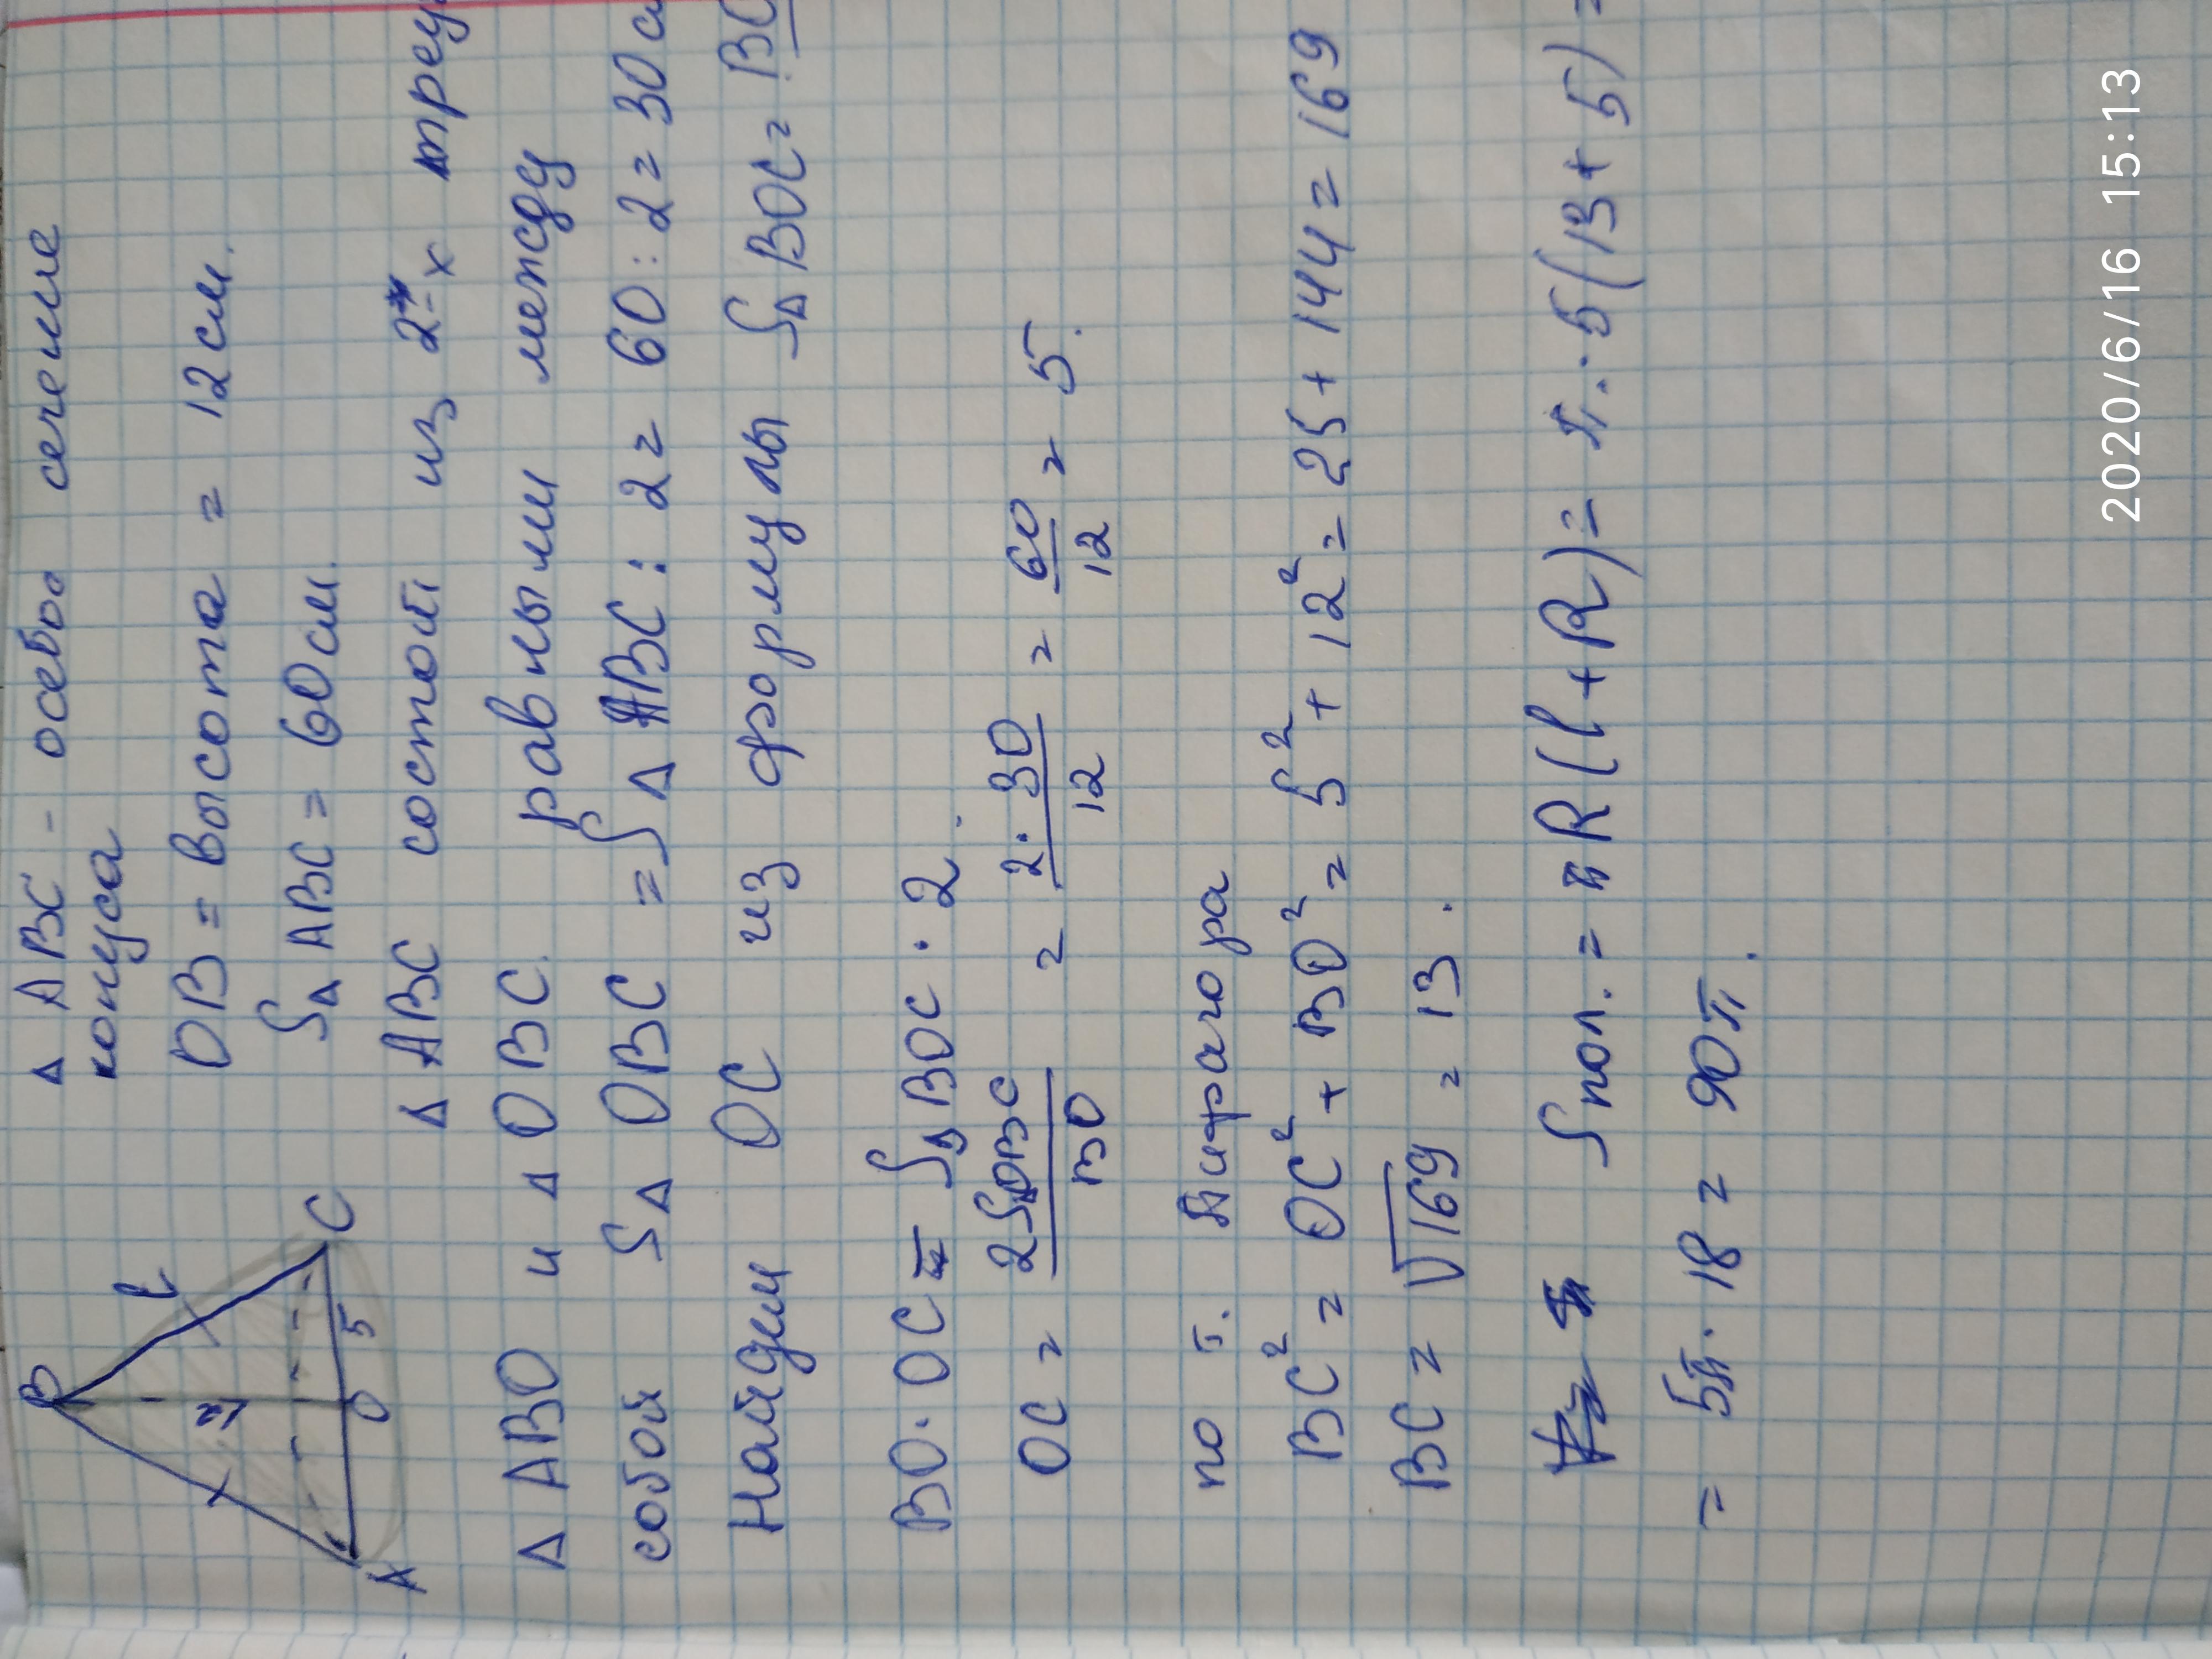 Δ ABC - осево сечение
конуса
OB = высота = 12 см.
SΔ ABC = 60 см.
Δ ABC состоит из 2-х треу
Δ ABO и Δ OBC. равными между
собой SΔ OBC = SΔ ABC : 2 = 60 : 2 = 30 с
Найдем OC из формулы SΔ BOC = BO
BO · OC = SΔ BOC · 2.
OC = 2SΔOBC / BO = 2 · 30 / 12 = 60 / 12 = 5.
по т. Пифагора
BC² = OC² + BO² = 5² + 12² = 25 + 144 = 169
BC = √169 = 13.
Sпол. = π R (l + R) = π · 5 (13 + 5) =
= 5π · 18 = 90π.
B
l
C
5
O
A
2020/6/16 15:13